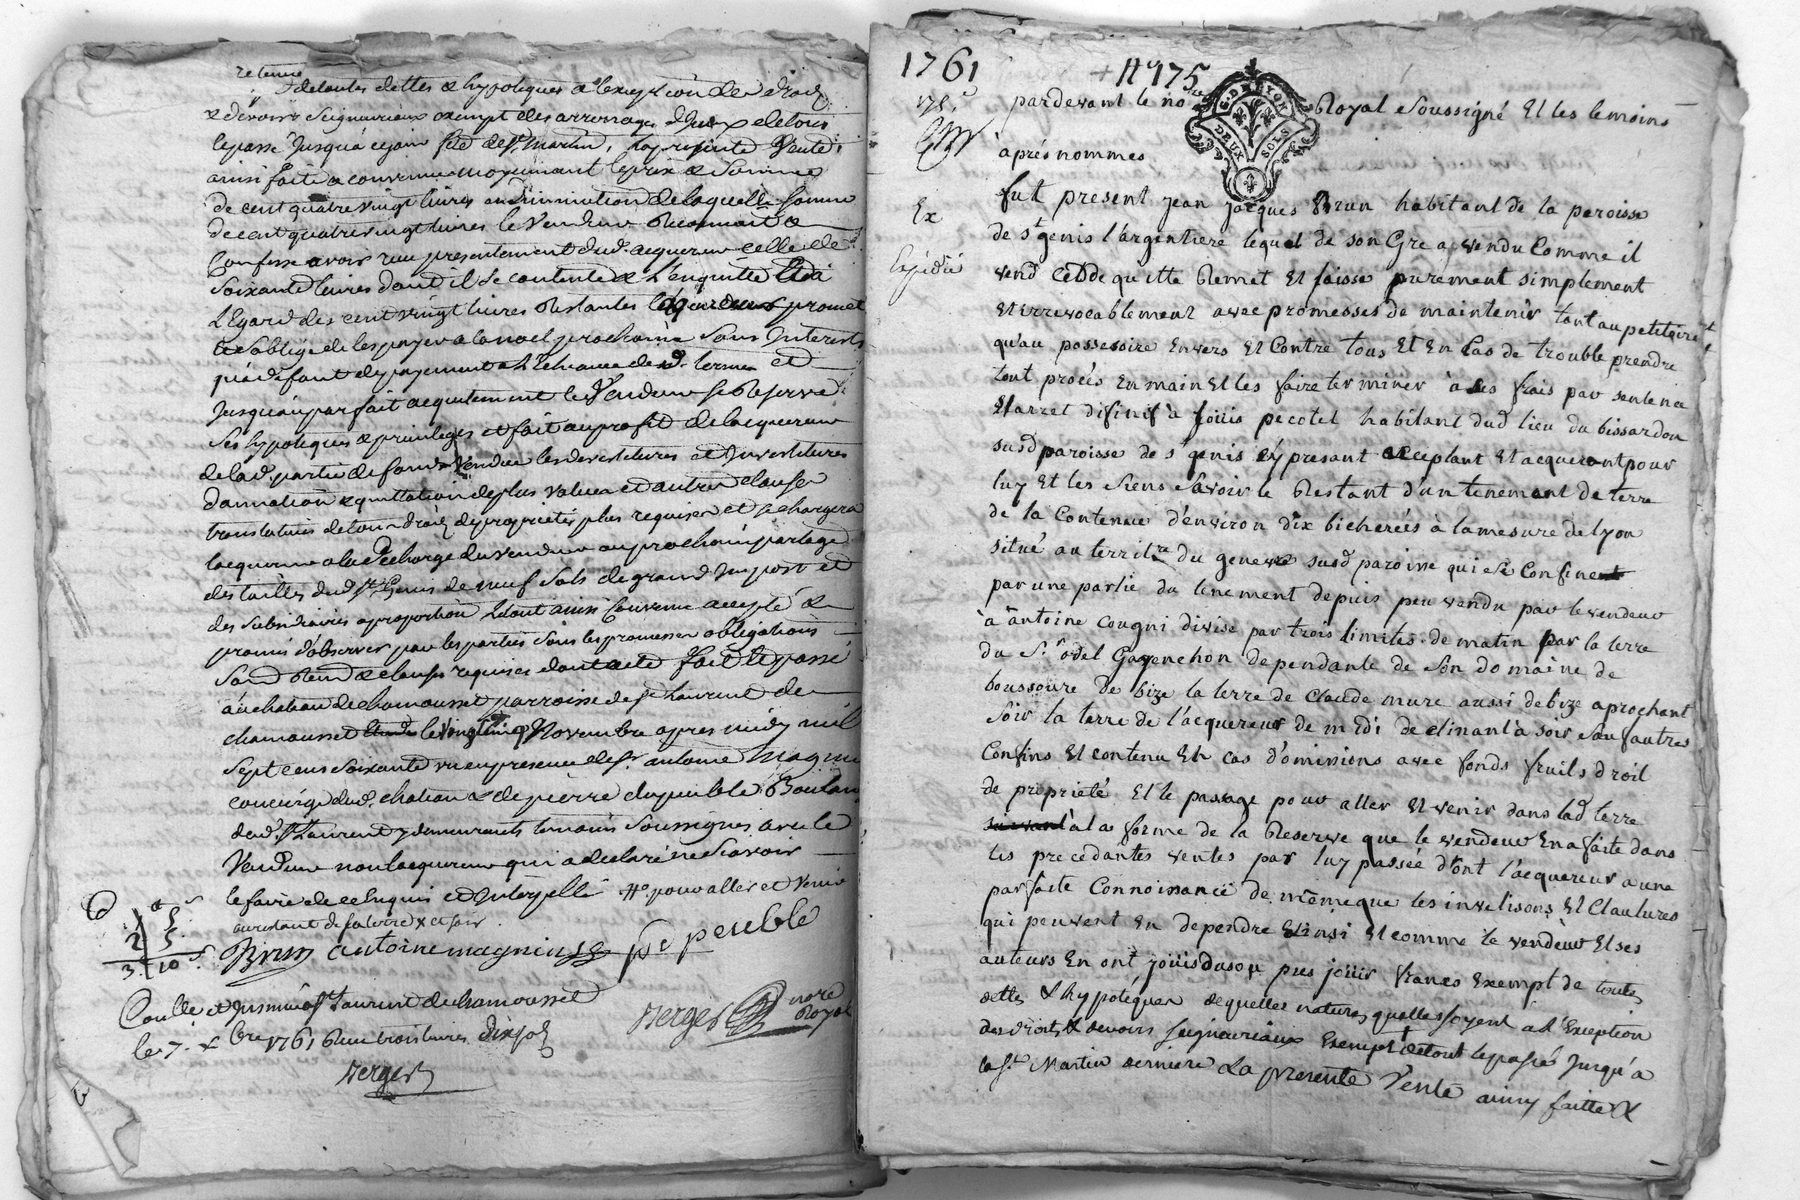 retenue
de toutes dettes & hypoteques a lexception des droits
& devoirs seigneuriaux exempt des arrerages d'yceux de tout
le passé jusqu'à ce jour fete de st martin, la presente vente
ainsi faite & convenue moyennant le prix & somme
de cent quatre vingt livres en diminution de laquelle somme
de cent quatre vingt livres le vendeur reconnait &
confesse avoir reçu presentement dud. acquereur celle de
soixante livres dont il se contente & l'en quitte Et à
L'Egard des cent vingt livres restantes lacquereur promet
& s'oblige de les payer a la noel prochaine sans interests
qu'a défaut de payement a l'echeance dud. terme et
jusqu'au parfait acquittement le Vendeur se reserve
ses hypoteques & privileges et fait au profit de lacquereur
de lad. partie de fonds vendue les devestitures et investitures
donnation & quittation de plus value et autres clauses
translatives de tous droits de proprietés plus requises et se chargera
lacquereur a la decharge du vendeur au prochain partage
des tailles dud. st Genis de neuf sols de grand impost et
des subsidiaires a proportion le tout ainsi convenu accepté &
promis d'observer par les parties sous les promesses obligations
soumd renond & clauses requises dont acte fait & passé
au chateau de chamousset parroisse de st Laurent de
chamousset le vingtieme Novembre apres midy mil
sept cens soixante un en presence de sr antoine magnin
concierge dud. chateau & de pierre dupeuble
dud. st Laurent y demeurants temoins soussignés avec le
Vendeur non lacquereur qui a declaré ne sçavoir
le faire de ce enquis et interpellé # pour aller et venir
au restant de sa terre & et soir
Brun antoine magnin pre peuble
1 5
2 5
3 10
Controllé et insinué à st Laurent de chamousset
le 7. xbre 1761 Reçu trois livres dix sols
Verger
Verger nore Royal
1761 No 175
175.
pardevant le nore Royal soussigné Et les temoins
G. DE LYON
DEUX SOLS
àprés nommes
fut present jean jacques Brun habitant de la paroisse
Ex
de st genis l'argentiere lequel de son Gre a vendu Comme il
Expedié
vend Cedde quitte Remet Et laisse purement simplement
Et irrevocablement avec promesses de maintenir tant au petitoire
qu'au possesoire Envers Et Contre tous Et En Cas de trouble prendre
tout procés En main Et les faire terminer à ses frais par sentence
Et arret difinif à Loüis pecotet habitant dud lieu du bissardon
susd paroisse de st genis çy presant acceptant Et acquerant pour
luy Et les siens savoir le Restant d'un tenemant de terre
de la Contenue d'environ dix bicherées à la mesure de lyon
situé au territre du genevre susd paroisse qui se Confine
par une partie du tenement depuis peu vendu par le vendeur
à antoine cougni divisé par trois limites de matin par la terre
du Sr odet Gayenchon dependante de son domaine de
boussoure de bize la terre de Claude mure aussi de bize aprochant
soir la terre de l'acquereur de mEdi declinant à soir sauf autres
Confins Et contenu En cas d'omissions avec fonds fruits droit
de proprieté Et le passage pour aller Et venir dans lad terre
suivant à la forme de la Reserve que le vendeur En a faite dans
les precedantes ventes par luy passée dont l'acquereur a une
parfaite Connoissance de même que les investisons Et Clautures
qui peuvent en dependre Et insi Et comme le vendeur Et ses
auteurs En ont joüis du sou pus joüir francs Exempt de toutes
dettes & hypoteques de quelles natures quelles soyent à l'Exception
des droits & devoirs seigneuriaux Exempt de tout le passé jusqu'à
la st Martin derniere La presente Vente ainsy faitte &